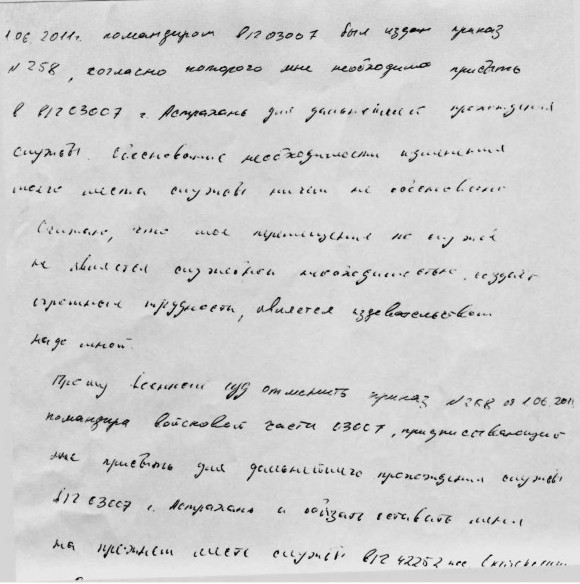 1.06.2011г. командиром в/ч 03007 был издан приказ
№ 258, согласно которого мне необходимо прибыть
в в/ч 03007 г. Астрахань для дальнейшей прохождения
службы. необходимости изменения
моего места службы ничем не обосновано
Считаю, что мое перемещение по службе
не является служебной необходимостью, создаёт
огромные трудности, является издевательством
надо мной.
Прошу военный суд отменить приказ № 258 от 1.06.2011
командира войсковой части 03007, предписывающий
мне прибыть для дальнейшего прохождения службы
в/ч 03007 г. Астрахань и обязать оставить меня
на прежнем месте службы в/ч 42252